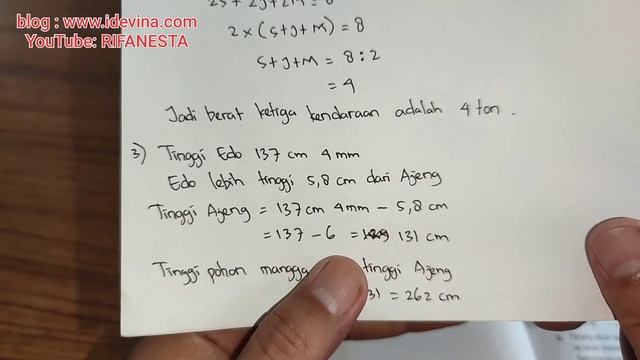 blog : www.idevina.com
YouTube: RIFANESTA
2S + 2J + 2M = 8
2 × (S+J+M) = 8
S+J+M = 8 : 2
= 4
Jadi berat ketiga kendaraan adalah 4 ton.
3) Tinggi Edo 137 cm 4 mm
Edo lebih tinggi 5,8 cm dari Ajeng
Tinggi Ajeng = 137 cm 4 mm - 5,8 cm
= 137 - 6 = 131 cm
Tinggi pohon mangga tinggi Ajeng
31 = 262 cm